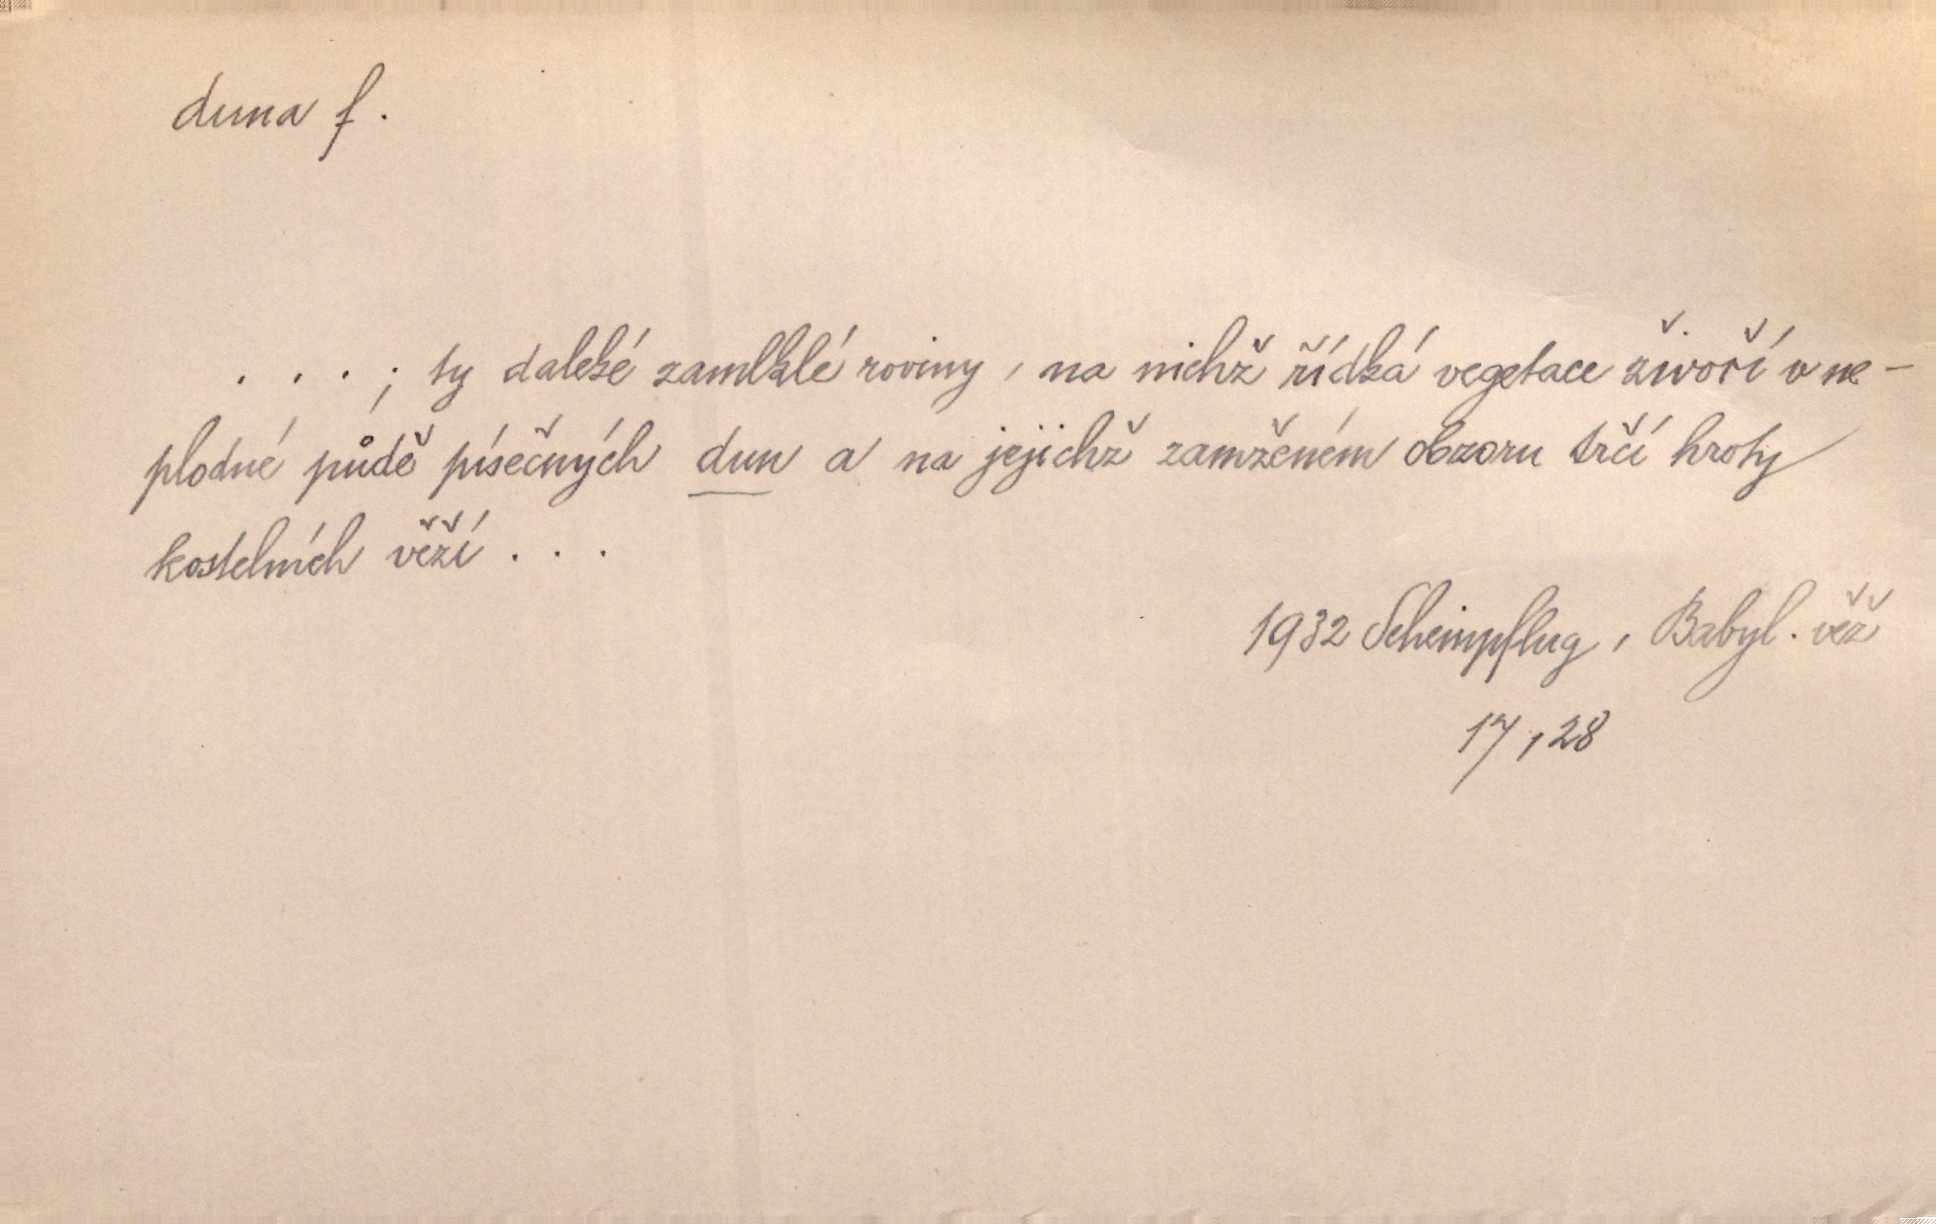 duna f.
. . . ; ty daleké zamlklé roviny, na nichž řídká vegetace živoří v ne-
plodné půdě písečných dun a na jejichž zamženém obzoru trčí hroty
kostelních věží . . .
1932 Scheinpflug, Babyl. věž
17, 28